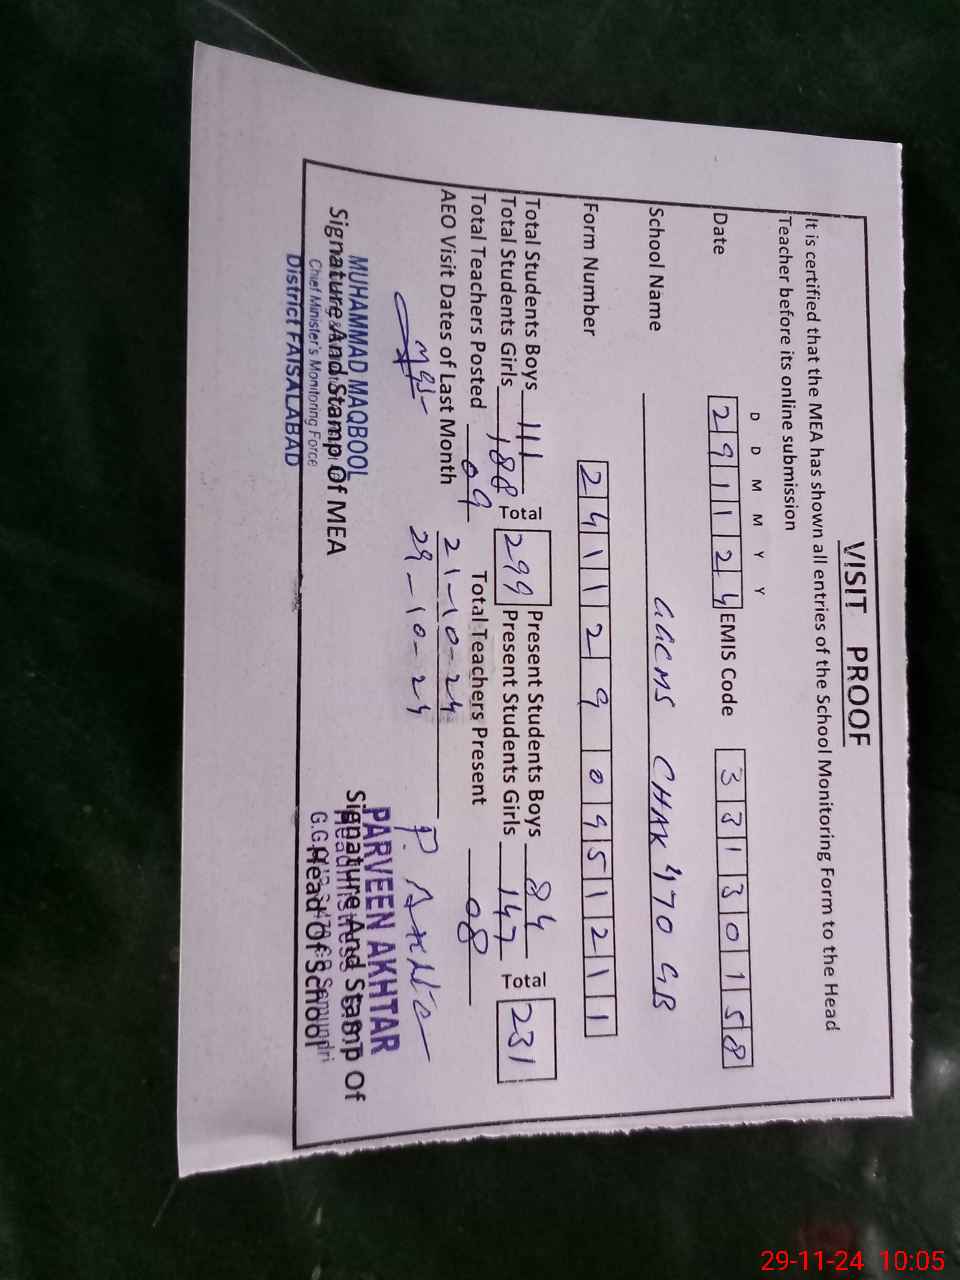 VISIT PROOF
It is certified that the MEA has shown all entries of the School Monitoring Form to the Head
Teacher before its online submission
D D M M Y Y
Date 291124 EMIS Code 33130158
School Name GGCMS CHAK 470 GB
Form Number 2411290951211
Total Students Boys 111 Total 299 Present Students Boys 84 Total 231
Total Students Girls 188 Present Students Girls 147
Total Teachers Posted 09 Total Teachers Present 08
AEO Visit Dates of Last Month 21-10-24
29-10-24
P. Akhtar
MUHAMMAD MAQBOOL
Chief Minister's Monitoring Force
District FAISALABAD
Signature And Stamp Of MEA
PARVEEN AKHTAR
Headmistress
Signature And Stamp Of
Head Of School
29-11-24 10:05